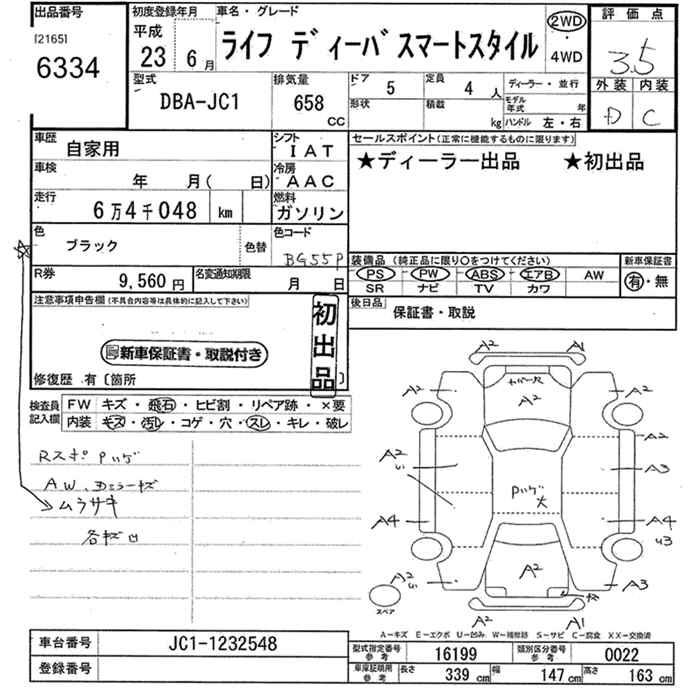 出品番号
[2165]
6334
初度登録年月
平成
23 6月
車名・グレード
ライフ ディーバ スマートスタイル
2WD
・
4WD
評価点
3.5
外装 内装
D C
型式
DBA-JC1
排気量
658
CC
ドア
5
定員
4 人
ディーラー・並行
形状
積載
kg
モデル年式 年
ハンドル 左・右
車歴
自家用
シフト
IAT
車検
年 月( 日)
冷房
AAC
走行
6万4千048 km
燃料
ガソリン
色
ブラック
色替
色コード
BG55P
R券
9,560 円
名変通知期限
月 日
セールスポイント(正常に機能するものに限ります)
★ディーラー出品 ★初出品
装備品 (純正品に限り○をつけてください)
PS PW ABS エアB AW
SR ナビ TV カワ
新車保証書
有・無
後日品
保証書・取説
注意事項申告欄(不具合内容等は具体的に記入して下さい)
新車保証書・取説付き
初出品
修復歴 有〔箇所 〕
検査員記入欄
FW キズ・飛石・ヒビ割・リペア跡・×要
内装 キズ・汚レ・コゲ・穴・スレ・キレ・破レ
Rスポ Pハゲ
AW、Dミラーキズ
ムラサキ
各キズ凹
A2 A1
カバー欠
A2 A2 A2
A2
A2 A3
Pハゲ大
A4 A4
A2 A2 A3
スペア
A2 A1
A－キズ E－エクボ U－凹み W－補修跡 S－サビ C－腐食 XX－交換済
車台番号
JC1-1232548
登録番号
型式指定番号
参考
16199
類別区分番号
参考
0022
車庫証明用
参考
長さ 339 cm 幅 147 cm 高さ 163 cm